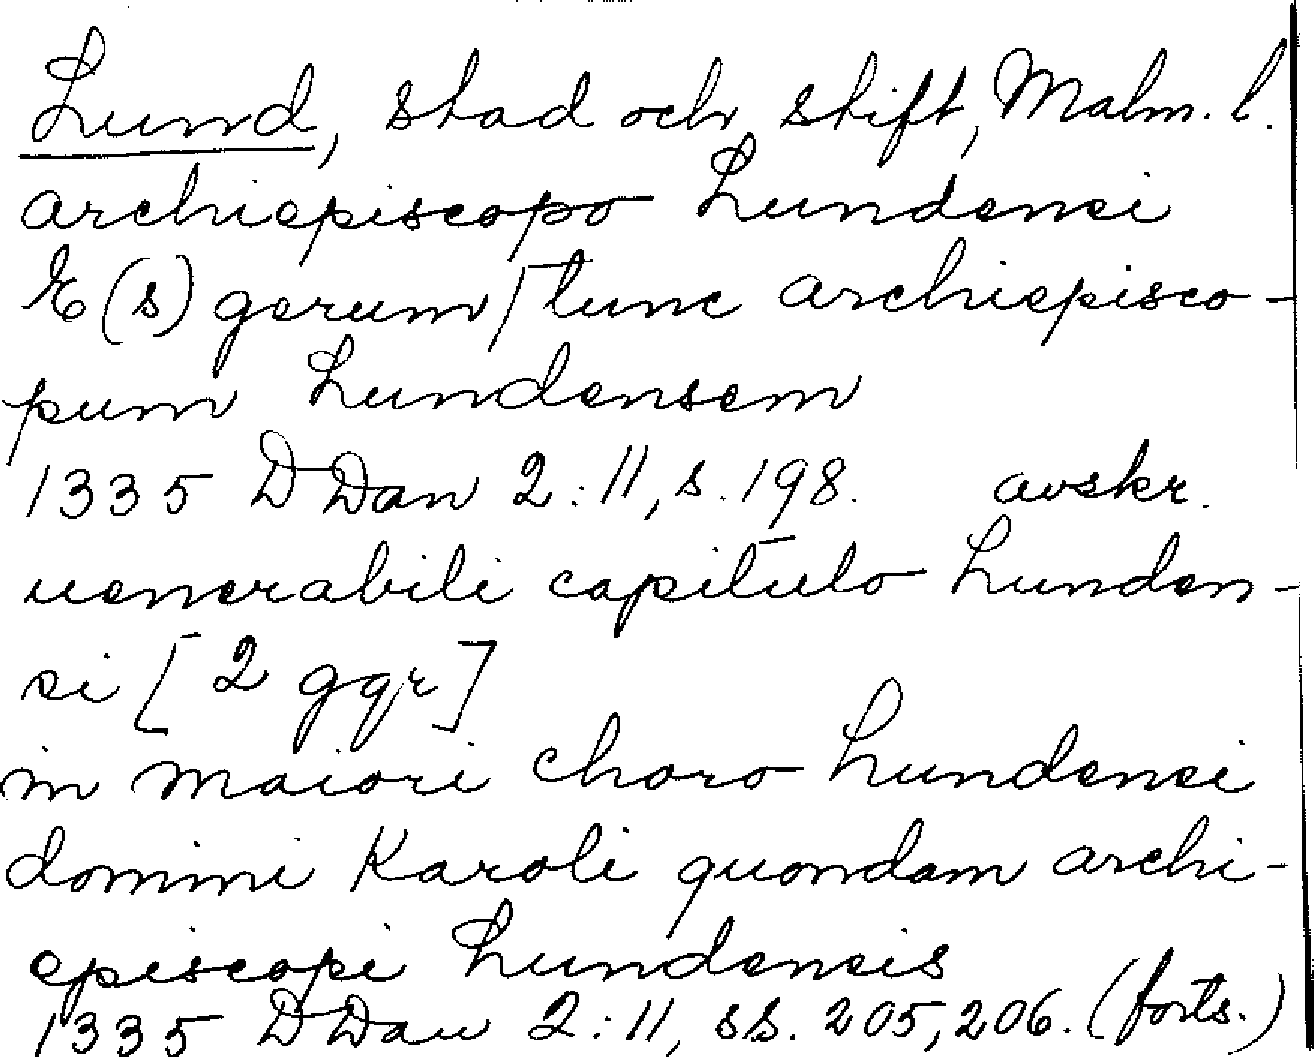 Lund, stad och stift, Malm. l.
archiepiscopo Lundensi
E(s)gerum / tunc archiepisco-
pum Lundensem
1335 DDan 2:11, s. 198. avskr.
uenerabili capitulo Lunden-
si [2 ggr]
in maiori choro Lundensi
domini Karoli quondam archi-
episcopi Lundensis
1335 DDan 2:11, ss. 205, 206. (forts.)